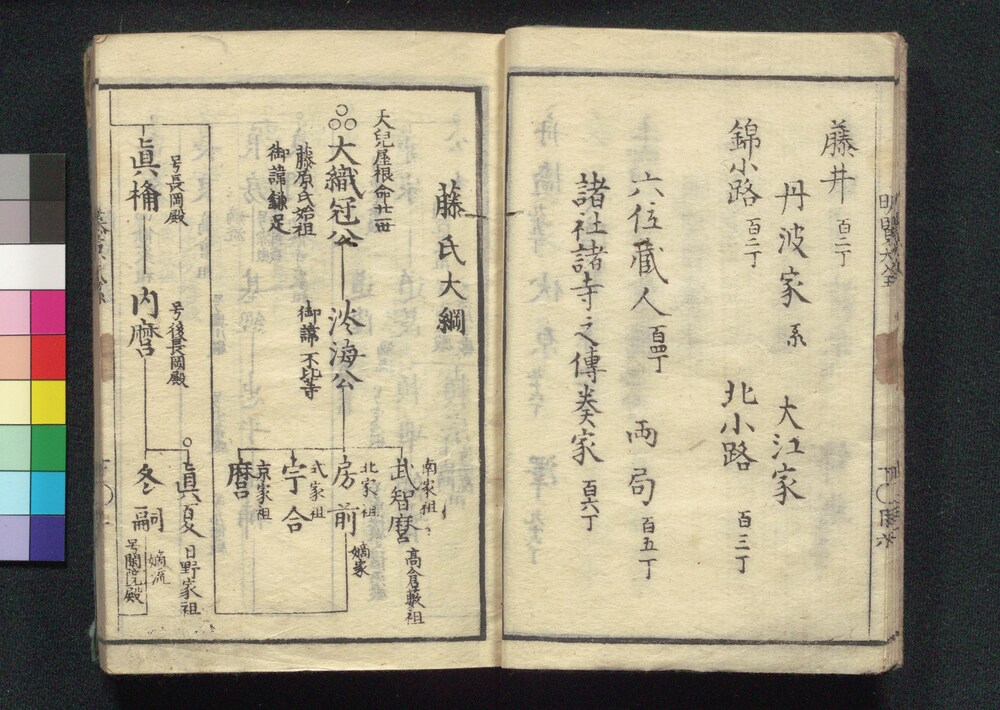 藤井 百二丁
丹波家 系
大江家
錦小路 百二丁
北小路 百三丁
六位蔵人 百四丁
両局 百五丁
諸社諸寺之傳奏家 百六丁
藤氏大綱
天兒屋根命廿一世
大織冠公
藤原氏始祖
御諱鎌足
淡海公
御諱不比等
南家祖
武智麿
高倉藪祖
北家祖
房前
嫡家
式家祖
宇合
京家祖
麿
号長岡殿
真楯
号後長岡殿
内麿
真夏 日野家祖
冬嗣
嫡流
号閑院殿